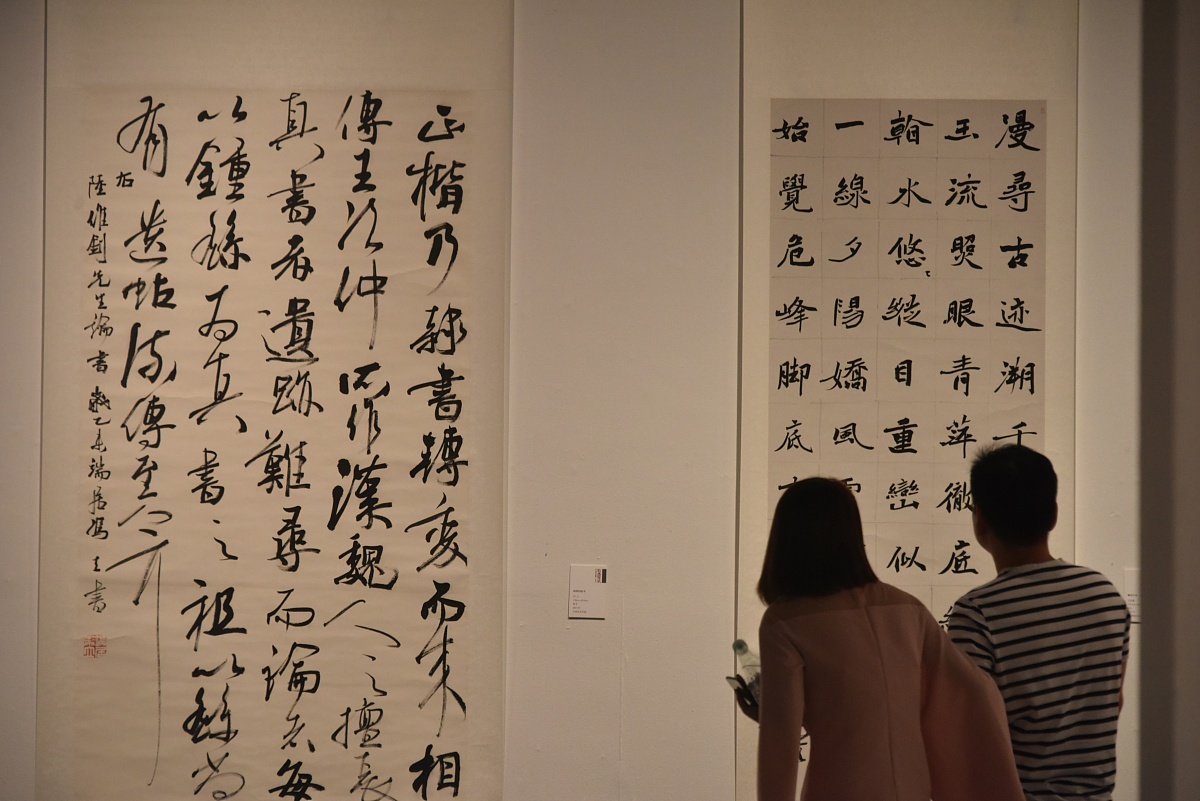 漫尋古迹溯千
玉流照眼青萍徹底
水悠〻縱目重巒似
一線夕陽嬌風
始覺危峰脚底
正楷乃隸書轉變而來相
傳王次仲所作漢魏人之擅長
真書者遺跡難尋而論者每
以鍾繇為真書之祖以繇尚
有遺帖流傳至今耳
右
陸維釗先生論書 乙未端居 書